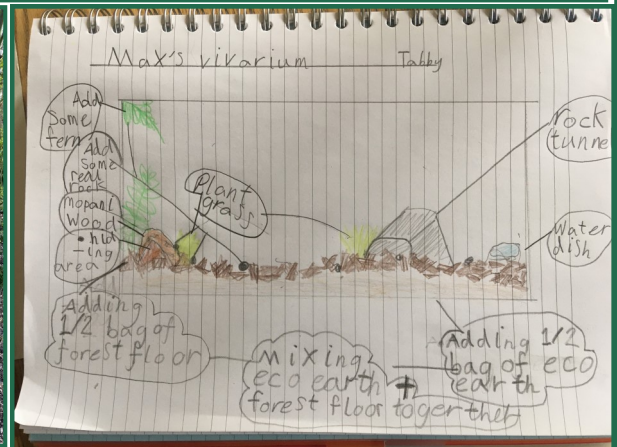 Max's vivarium Tabby
Add
some
fern
Add
some
real
rock
mopani
wood
• hid
-ing
area
Plant
grass
rock
tunne
Water
dish
Adding
1/2 bag of
forest floor
Mixing
eco earth +
forest floor together
Adding 1/2
bag of eco
earth